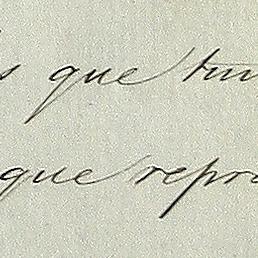 s que tu
que repr